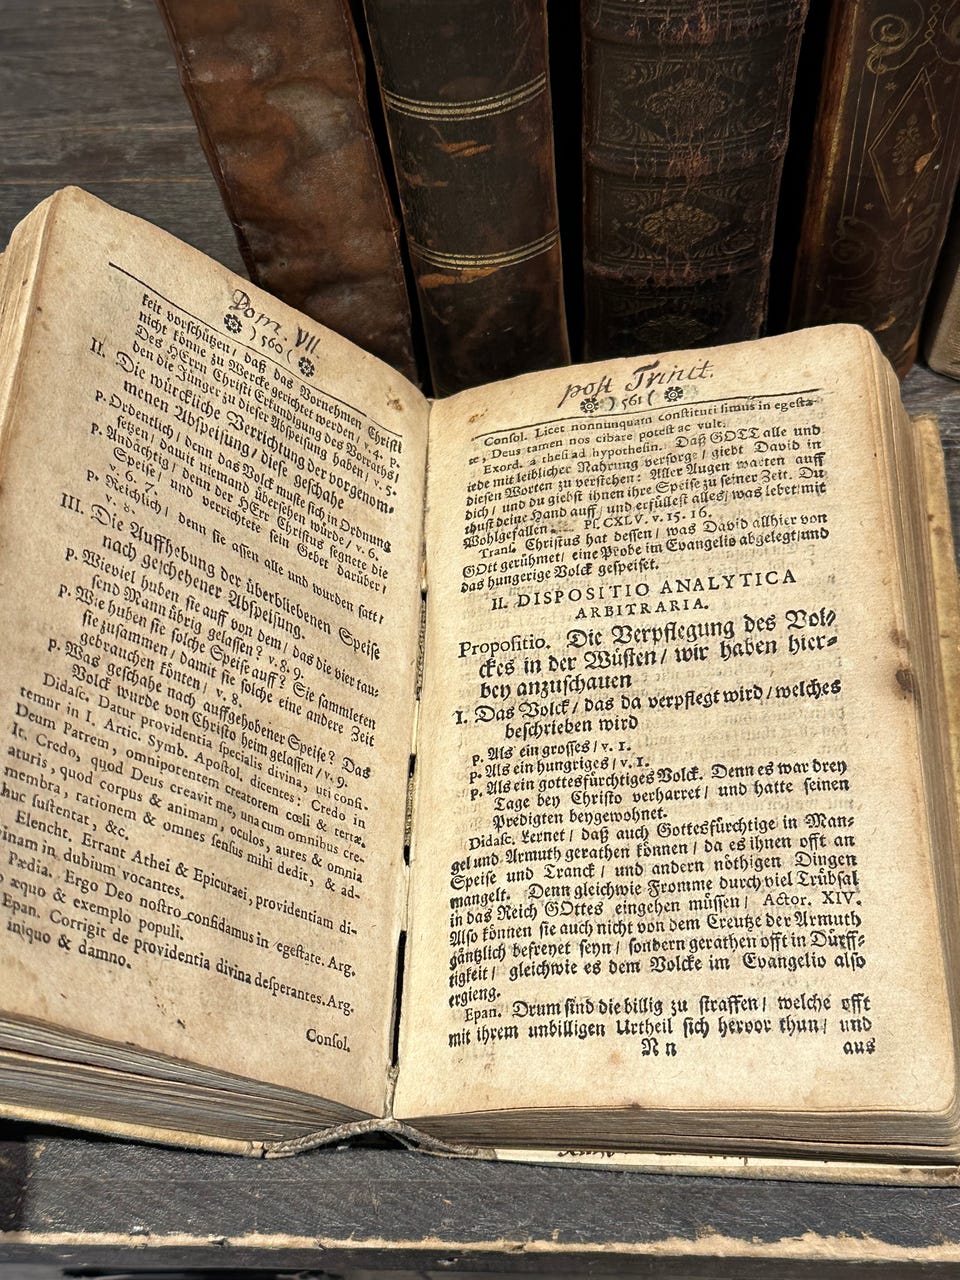 Dom. VII.
) 560 (
keit vorschützen / daß das Vornehmen Christi
nicht könne zu Wercke gerichtet werden / v. 4. p.
Des HErrn Christi Erkundigung des Vorraths /
den die Jünger zu dieser Abspeisung haben / v. 5.
II. Die würckliche Verrichtung der vorgenom-
menen Abspeisung / diese geschahe
p. Ordentlich / denn das Volck muste sich in Ordnung
setzen / damit niemand übersehen würde / v. 6.
p. Andächtig / denn der HErr Christus segnete die
Speise / und verrichtete sein Gebet darüber /
v. 6. 7.
p. Reichlich / denn sie assen alle und wurden satt /
v. 8.
III. Die Auffhebung der überbliebenen Speise
nach geschehener Abspeisung.
p. Wieviel huben sie auff von dem / das die vier tau-
send Mann übrig gelassen? v. 8. 9.
p. Wie huben sie solche Speise auff? Sie sammleten
sie zusammen / damit sie solche eine andere Zeit
gebrauchen könten / v. 8.
p. Was geschahe nach auffgehobener Speise? Das
Volck wurde von Christo heim gelassen / v. 9.
Didasc. Datur providentia specialis divina, uti confi-
temur in I. Artic. Symb. Apostol. dicentes: Credo in
Deum Patrem, omnipotentem creatorem cœli & terræ.
It. Credo, quod Deus creavit me, unacum omnibus cre-
aturis, quod corpus & animam, oculos, aures & omnia
membra, rationem & omnes sensus mihi dedit, & ad-
huc sustentat, &c.
Elencht. Errant Athei & Epicuraei, providentiam di-
inam in dubium vocantes.
Pædia. Ergo Deo nostro confidamus in egestate. Arg.
æquo & exemplo populi.
Epan. Corrigit de providentia divina desperantes. Arg.
iniquo & damno.
Consol.
post Trinit.
) 561 (
Consol. Licet nonnunquam constituti simus in egesta-
te, Deus tamen nos cibare potest ac vult.
Exord. à thesi ad hypothesin. Daß GOTT alle und
iede mit leiblicher Nahrung versorge / giebt David in
diesen Worten zu verstehen: Aller Augen warten auff
dich / und du giebst ihnen ihre Speise zu seiner Zeit. Du
thust deine Hand auff / und erfüllest alles / was lebet / mit
Wohlgefallen Ps. CXLV. v. 15. 16.
Trans. Christus hat dessen / was David allhier von
GOtt gerühmet / eine Probe im Evangelio abgelegt / und
das hungerige Volck gespeiset.
II. DISPOSITIO ANALYTICA
ARBITRARIA.
Propositio. Die Verpflegung des Vol-
ckes in der Wüsten / wir haben hier-
bey anzuschauen
I. Das Volck / das da verpflegt wird / welches
beschrieben wird
p. Als ein grosses / v. 1.
p. Als ein hungriges / v. 1.
p. Als ein gottesfürchtiges Volck. Denn es war drey
Tage bey Christo verharret / und hatte seinen
Predigten beygewohnet.
Didasc. Lernet / daß auch Gottesfürchtige in Man-
gel und Armuth gerathen können / da es ihnen offt an
Speise und Tranck / und andern nöthigen Dingen
mangelt. Denn gleichwie Fromme durch viel Trübsal
in das Reich GOttes eingehen müssen / Actor. XIV.
Also können sie auch nicht von dem Creutze der Armuth
gäntzlich befreyet seyn / sondern gerathen offt in Dürff-
tigkeit / gleichwie es dem Volcke im Evangelio also
ergieng.
Epan. Drum sind die billig zu straffen / welche offt
mit ihrem unbilligen Urtheil sich hervor thun / und
Nn
aus